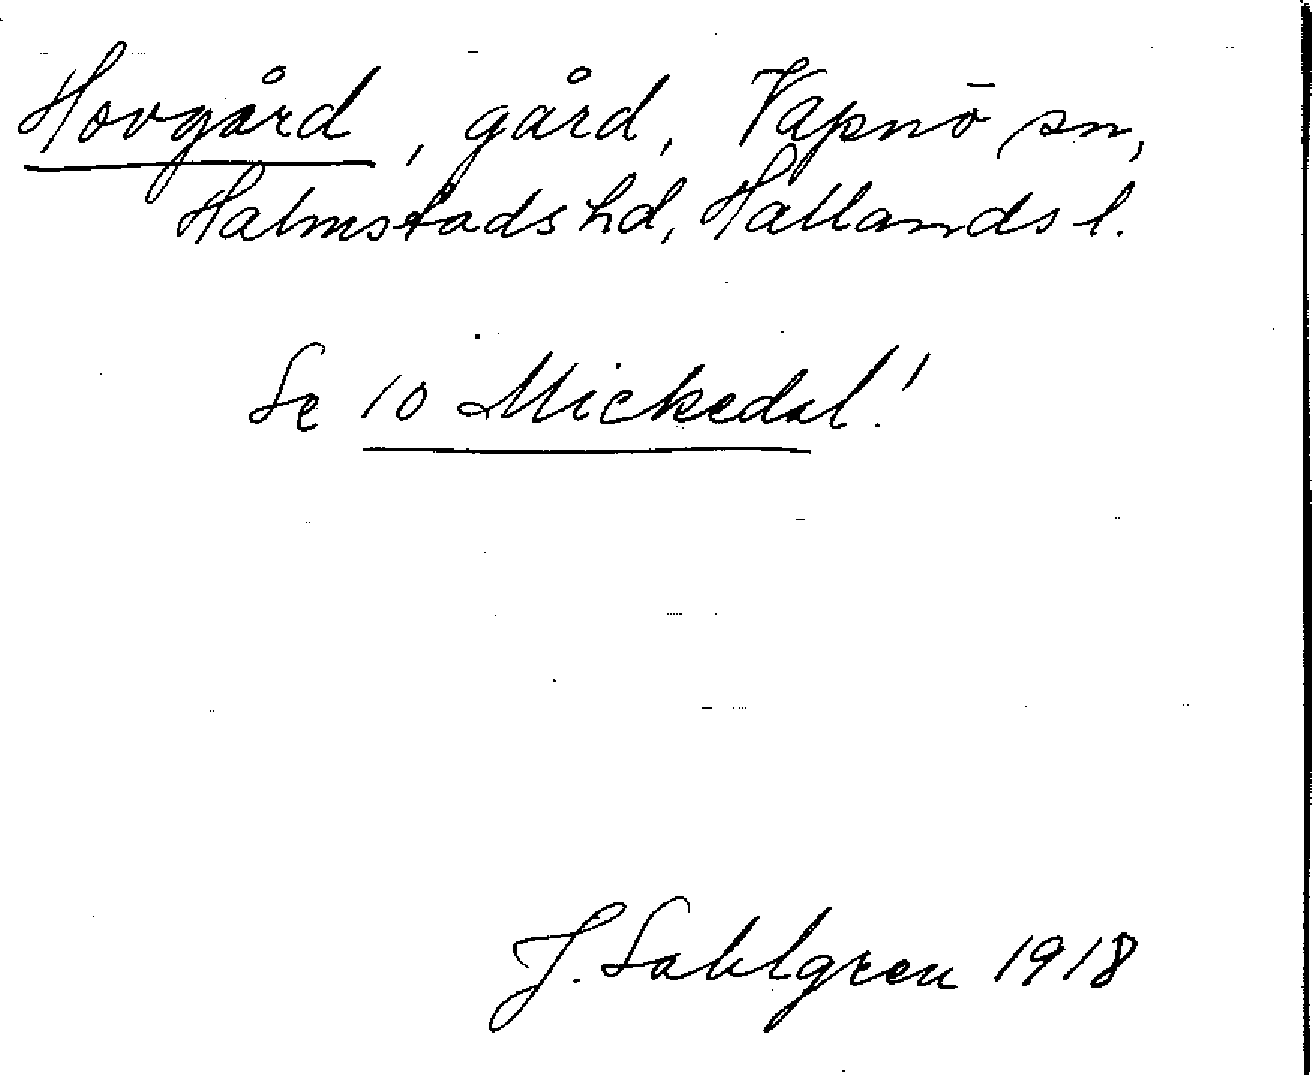 Hovgård, gård, Vapnö sn,
Halmstads hd, Hallands l.
Se 10 Mickedal!
J. Sahlgren 1918